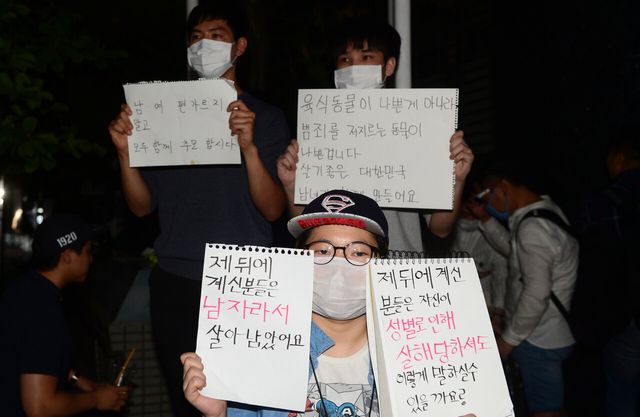 남 여 편가르지
말고
모두 함께 추모 합시다
육식동물이 나쁜게 아니라
범죄를 저지르는 동물이
나쁜겁니다
살기좋은 대한민국
만들어요
1920
제 뒤에
계신분들은
남자라서
살아 남았어요
제뒤에 계신
분들은 자신이
성별로 인해
살해당하셔도
이렇게 말하실수
있을까요?